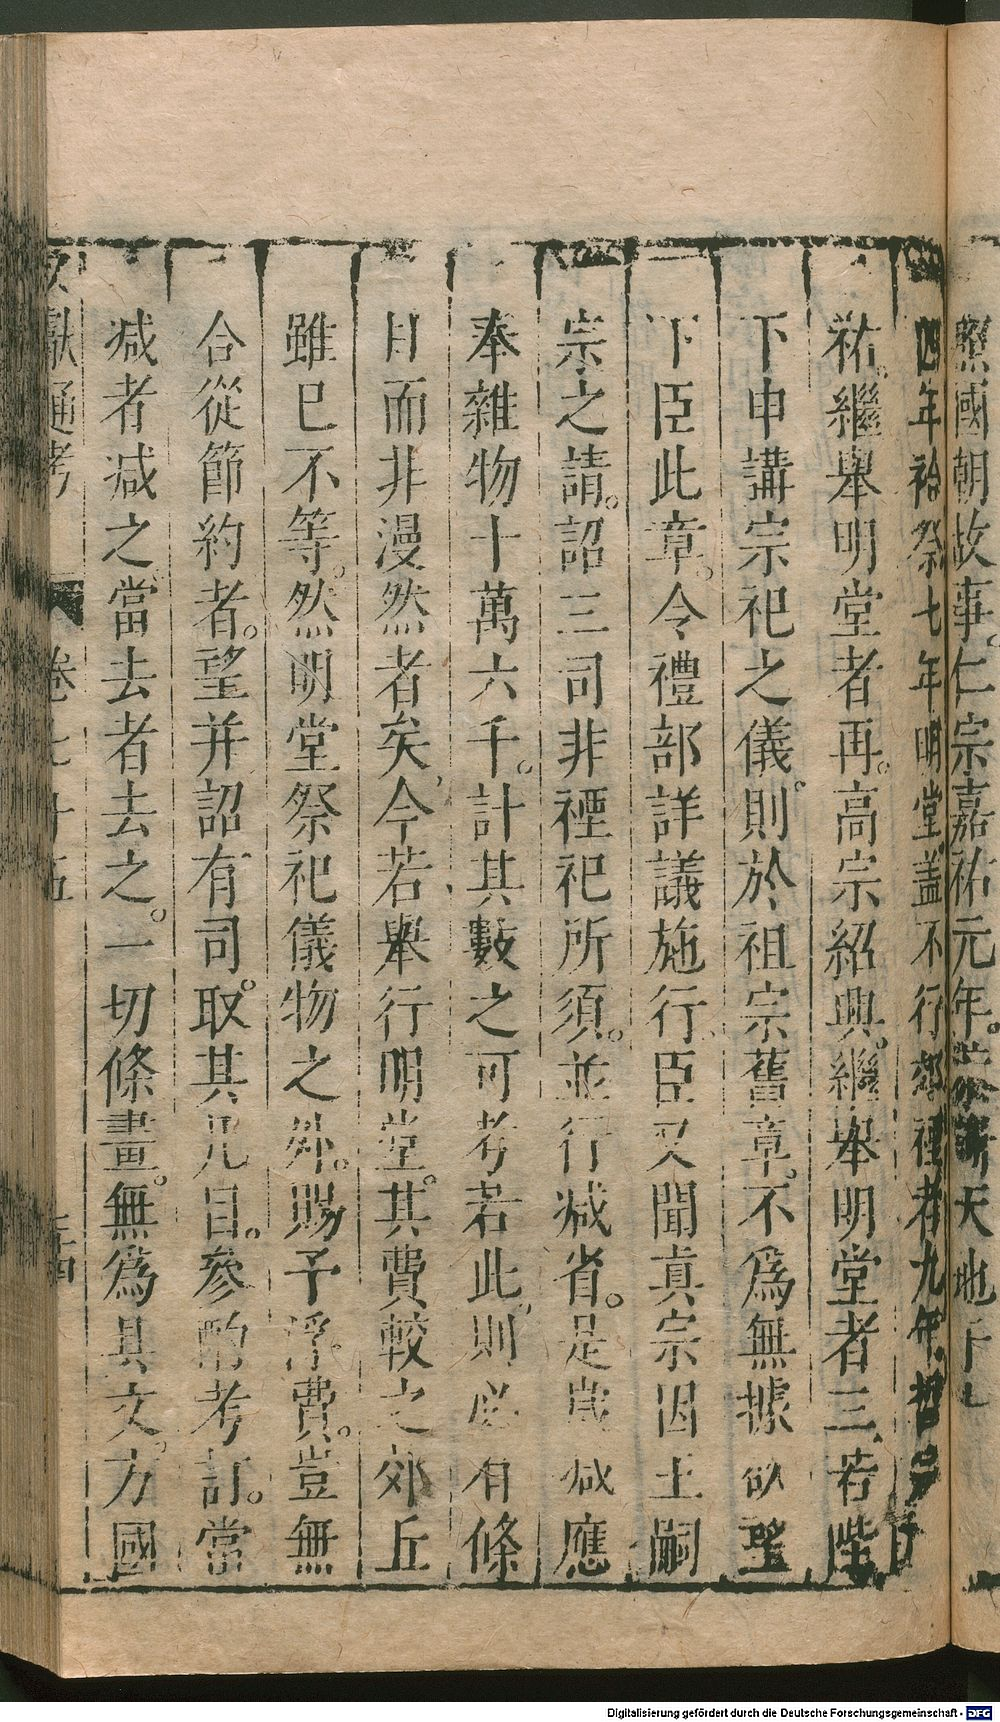 照國朝故事。仁宗嘉祐元年。恭謝天地于
四年祫祭七年明堂蓋不行郊禋者九年
祐。繼舉明堂者再。高宗紹興。繼舉明堂者三若陛
下申講宗祀之儀。則於祖宗舊章。不為無據欲望
下臣此章。令禮部詳議施行臣又聞真宗因王嗣
宗之請。詔三司非禋祀所須。並行減省。是歲減應
奉雜物十萬六千。計其數之可考若此。則必有條
目而非漫然者矣今若舉行明堂。其費較之郊丘
雖已不等。然明堂祭祀儀物之外。賜予浮費。豈無
合從節約者。望并詔有司。取其凡目。參酌考訂。當
減者減之當去者去之。一切條畫。無為具文。方國
文獻通考 卷七十五 二十四
Digitalisierung gefördert durch die Deutsche Forschungsgemeinschaft - DFG